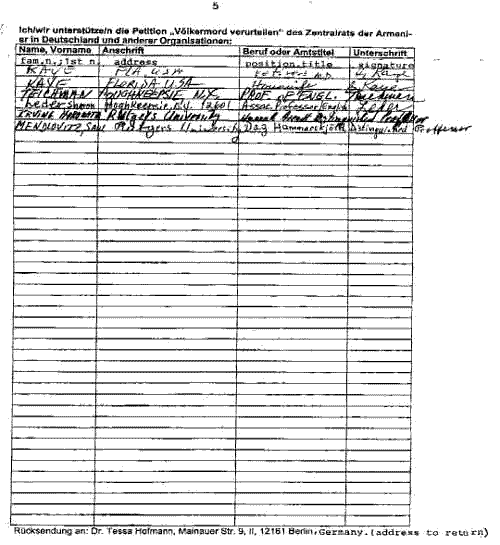 5
Ich/wir unterstütze/n die Petition „Völkermord verurteilen" des Zentralrats der Armeni-
er in Deutschland und anderer Organisationen:
Name, Vorname Anschrift Beruf oder Amtstitel Unterschrift
fam.n.;1st n. address position,title signature
KAYE FLA USA Retired M.D. Kaye
KAYE FLORIDA USA Kaye
TEICHMAN POUGHKEEPSIE N.Y. PROF ENGL.
Leder Sharon Poughkeepsie, N.Y. 12601 Assoc. Professor/English Leder
IRVING HOROWITZ Rutgers University Hannah Arendt Distinguished Professor
MENDLOVITZ, SAUL Rutgers University Dag Hammarskjöld Distinguished Professor
Rücksendung an: Dr. Tessa Hofmann, Mainauer Str. 9, II, 12161 Berlin, Germany. (address to return)